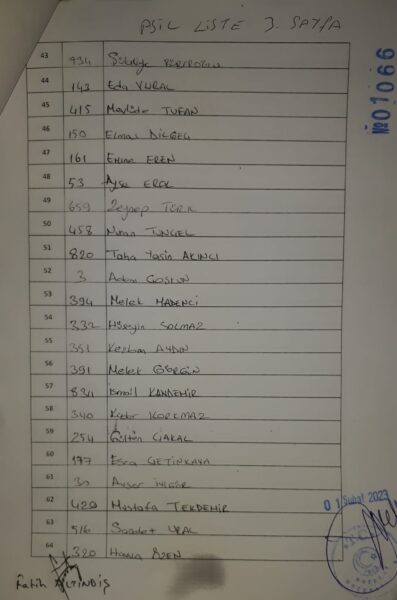 ASİL LİSTE 3. SAYFA
№01066
43 934
44 143 Eda VURAL
45 415 Mevlüde TUFAN
46 150 Elmas DİLGEL
47 161 Emine EREN
48 53 Ayşe EROL
49 659 Zeynep TÜRK
50 458 Nuran TUNGEL
51 820 Taha Yasin AKINCI
52 3 Adem COŞKUN
53 394 Melek MADENCİ
54 332 Hüseyin SOLMAZ
55 351 AYDIN
56 391 Melek GÖRGÜN
57 834 İsmail KANDEMİR
58 340 KORKMAZ
59 254 Gülten ÇAKAL
60 177 Esra ÇETİNKAYA
61 30 Ayser
62 429 Mustafa TEKDEMİR
63 516 Saadet URAL
64 320 Havva ÖZEN
01 Şubat 2023
Fatih ALTINDİŞ